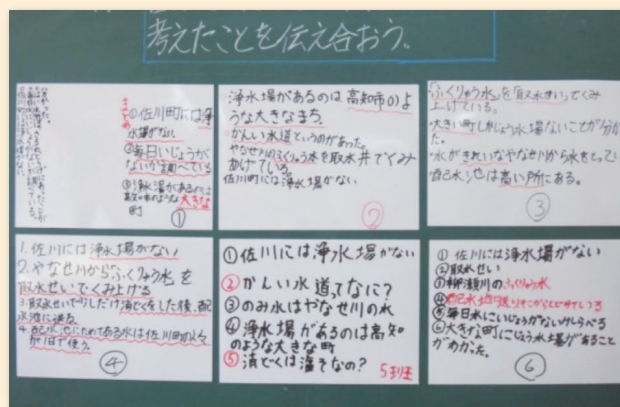 考えたことを伝え合おう。
まとめ
①佐川町には浄
水場がない
②毎日いじょうが
ないか調べている
③浄水場があるのは
大きな
町
①
浄水場があるのは高知市のよ
うな大きなまち
かんい水道というのがあった。
やなせ川のふくりゅう水を取水井でくみ
あげている。
佐川町には浄水場がない
②
「ふくりゅう水」を「取水せい」でくみ
上げている。
・大きい町しかじょう水場ないことが分かっ
た。
・水がきれいなやなせ川から水をとってい
・配水池は高い所にある。
③
1.佐川には浄水場がない
2.やなせ川から「ふくりゅう水」を
取水せいでくみ上げる
3.取水せいで少しだけ消どくをした後、配
水池に送る。
4.配水池にためてある水は佐川町の人々
が1日で使う。
④
①佐川には浄水場がない
②かんい水道ってなに?
③のみ水はやなせ川の水
④浄水場があるのは高知
のような大きな町
⑤消どくは塩そなの?
5まい
①佐川には浄水場がない
②取水せい
③柳瀬川のふくりゅう水
④配水池
⑤毎日水にいじょうがないかしらべる
⑥大きな町にじょう水場があること
がわかった。
⑥